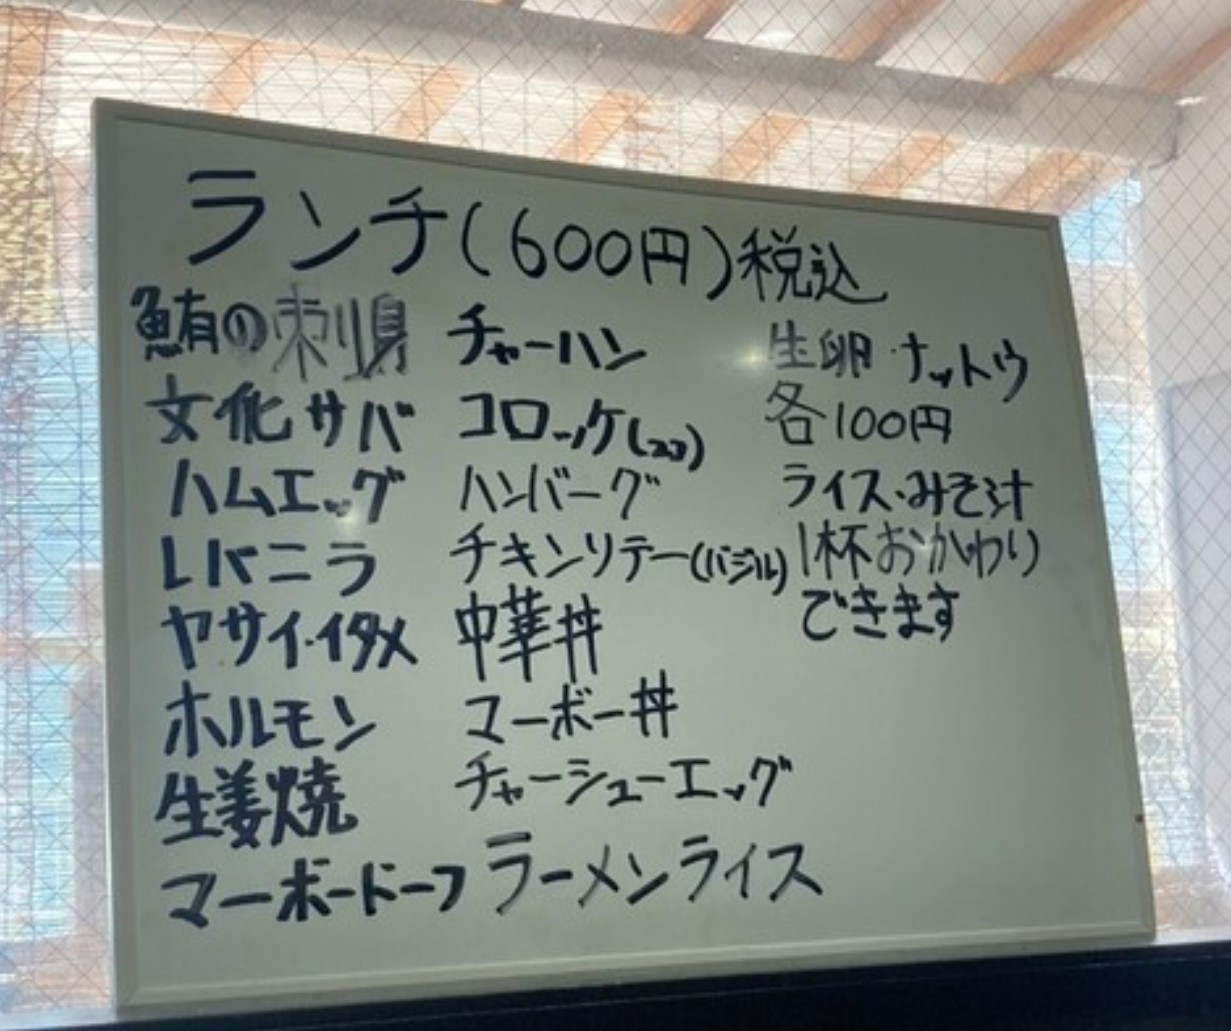 ランチ(600円)税込
鮪の刺身
文化サバ
ハムエッグ
レバニラ
ヤサイ・イタメ
ホルモン
生姜焼
マーボードーフ
チャーハン
コロッケ(2コ)
ハンバーグ
チキンソテー(バジル)
中華丼
マーボー丼
チャーシューエッグ
ラーメンライス
生卵・ナットウ
各100円
ライス・みそ汁
1杯おかわり
できます